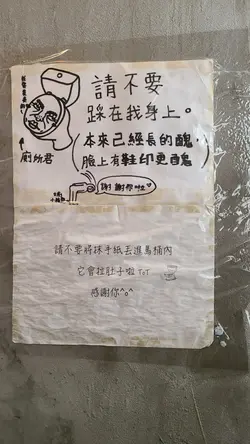 請不要
踩在我身上。
(本來已經長的醜,
臉上有鞋印更醜)
廁所君
謝謝你啦♡
請不要將抹手紙丟進馬桶內
它會拉肚子啦TOT
感謝你^o^